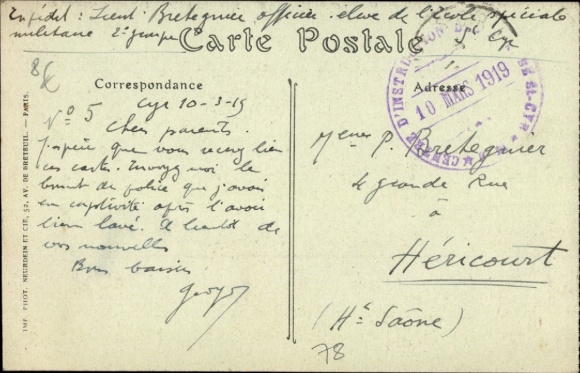 Expédit : Lieut Bretegnier officier élève de l'école spéciale
militaire 2e groupe St Cyr
Carte Postale
Correspondance
Adresse
CENTRE D'INSTRUCTION ST-CYR
10 MARS 1919
N° 5
Cyr 10-3-19
Chers parents.
J'espère que vous recevez bien
ces cartes. Envoyez moi le
bonnet de police que j'avais
en captivité après l'avoir
bien lavé. A bientôt de
vos nouvelles
Bons baisers
Georges
P. Bretegnier
4 grande Rue
à
Héricourt
(Hte Saône)
78
IMP. PHOT. NEURDEIN ET CIE, 52, AV. DE BRETEUIL. — PARIS.